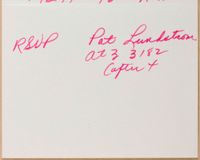 RSVP Pat Lundstrom
at 3 3182
after 4